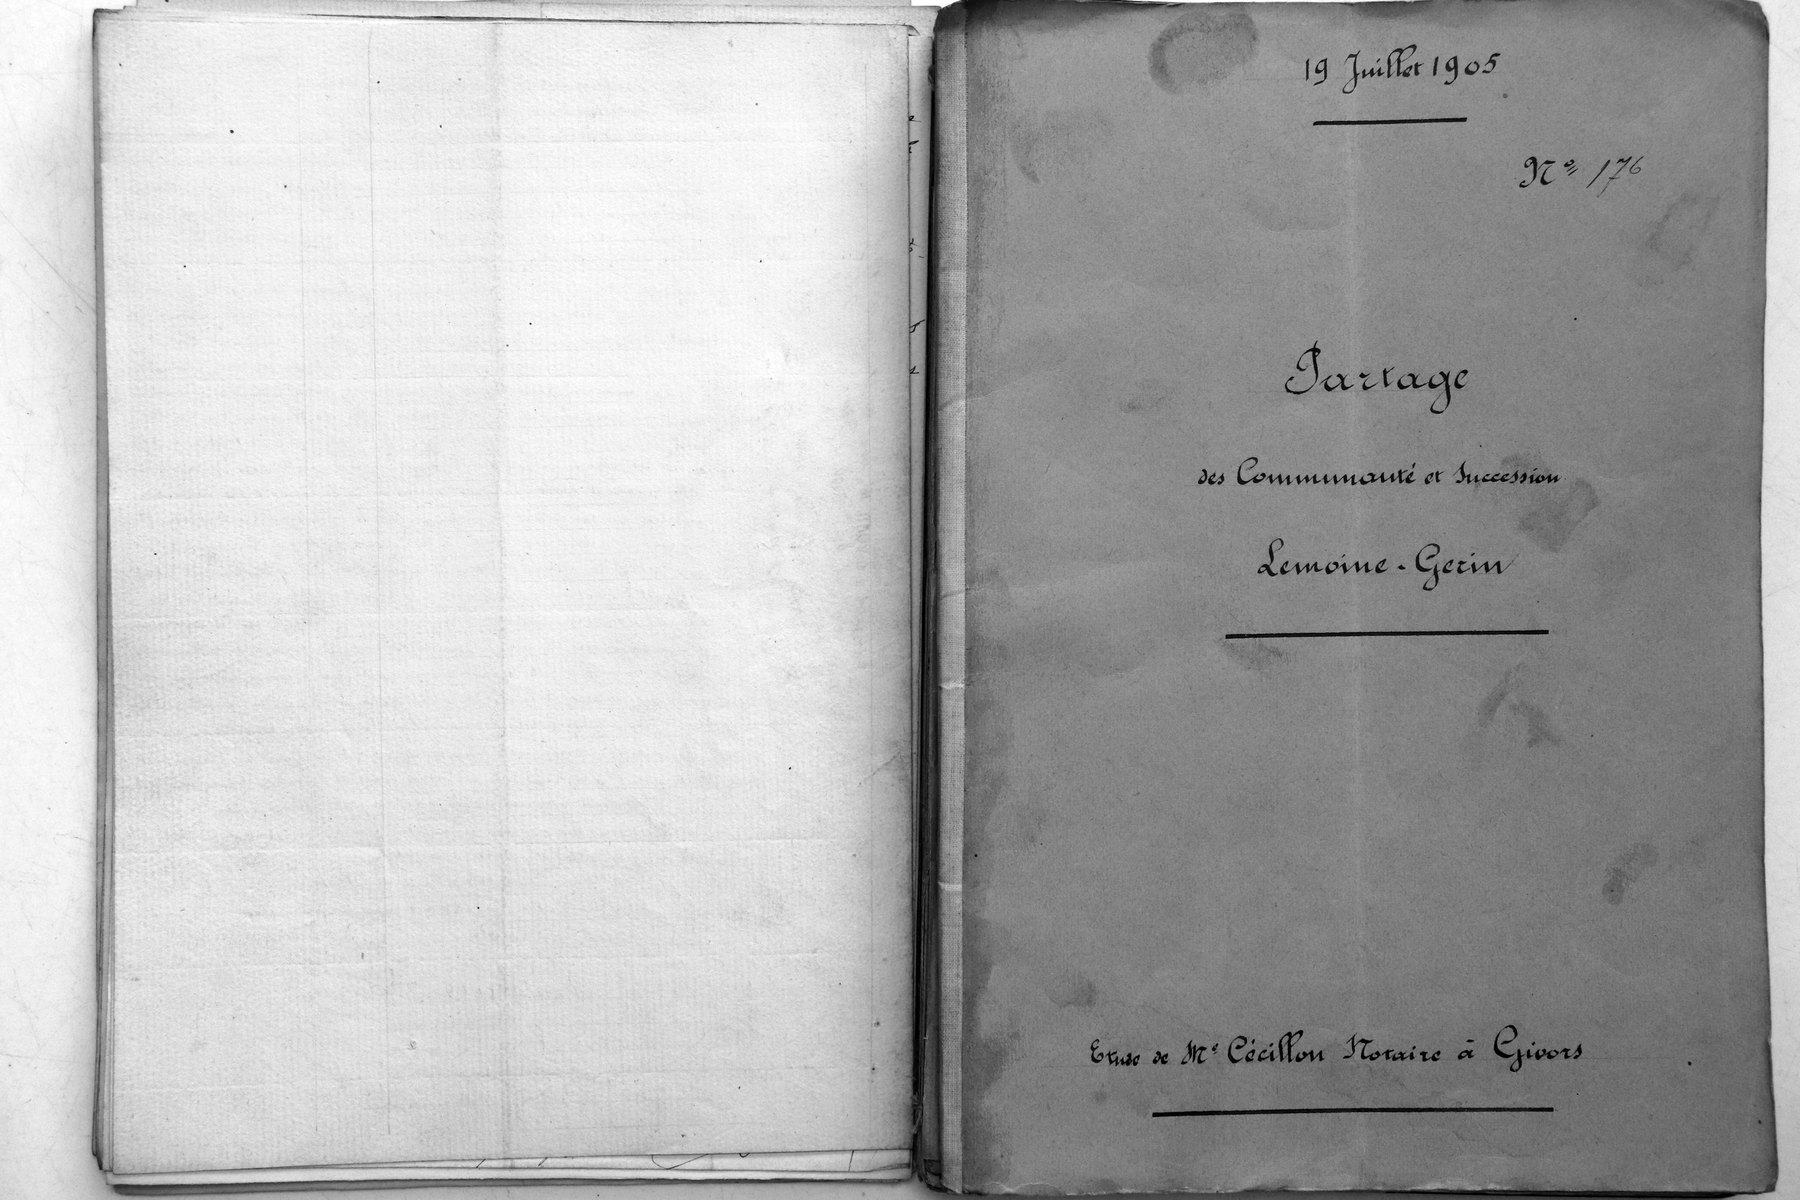 19 Juillet 1905
Nº 176
Partage
des Communauté et Succession
Lemoine - Gerin
Etude de Mᵉ Cécillon Notaire à Givors